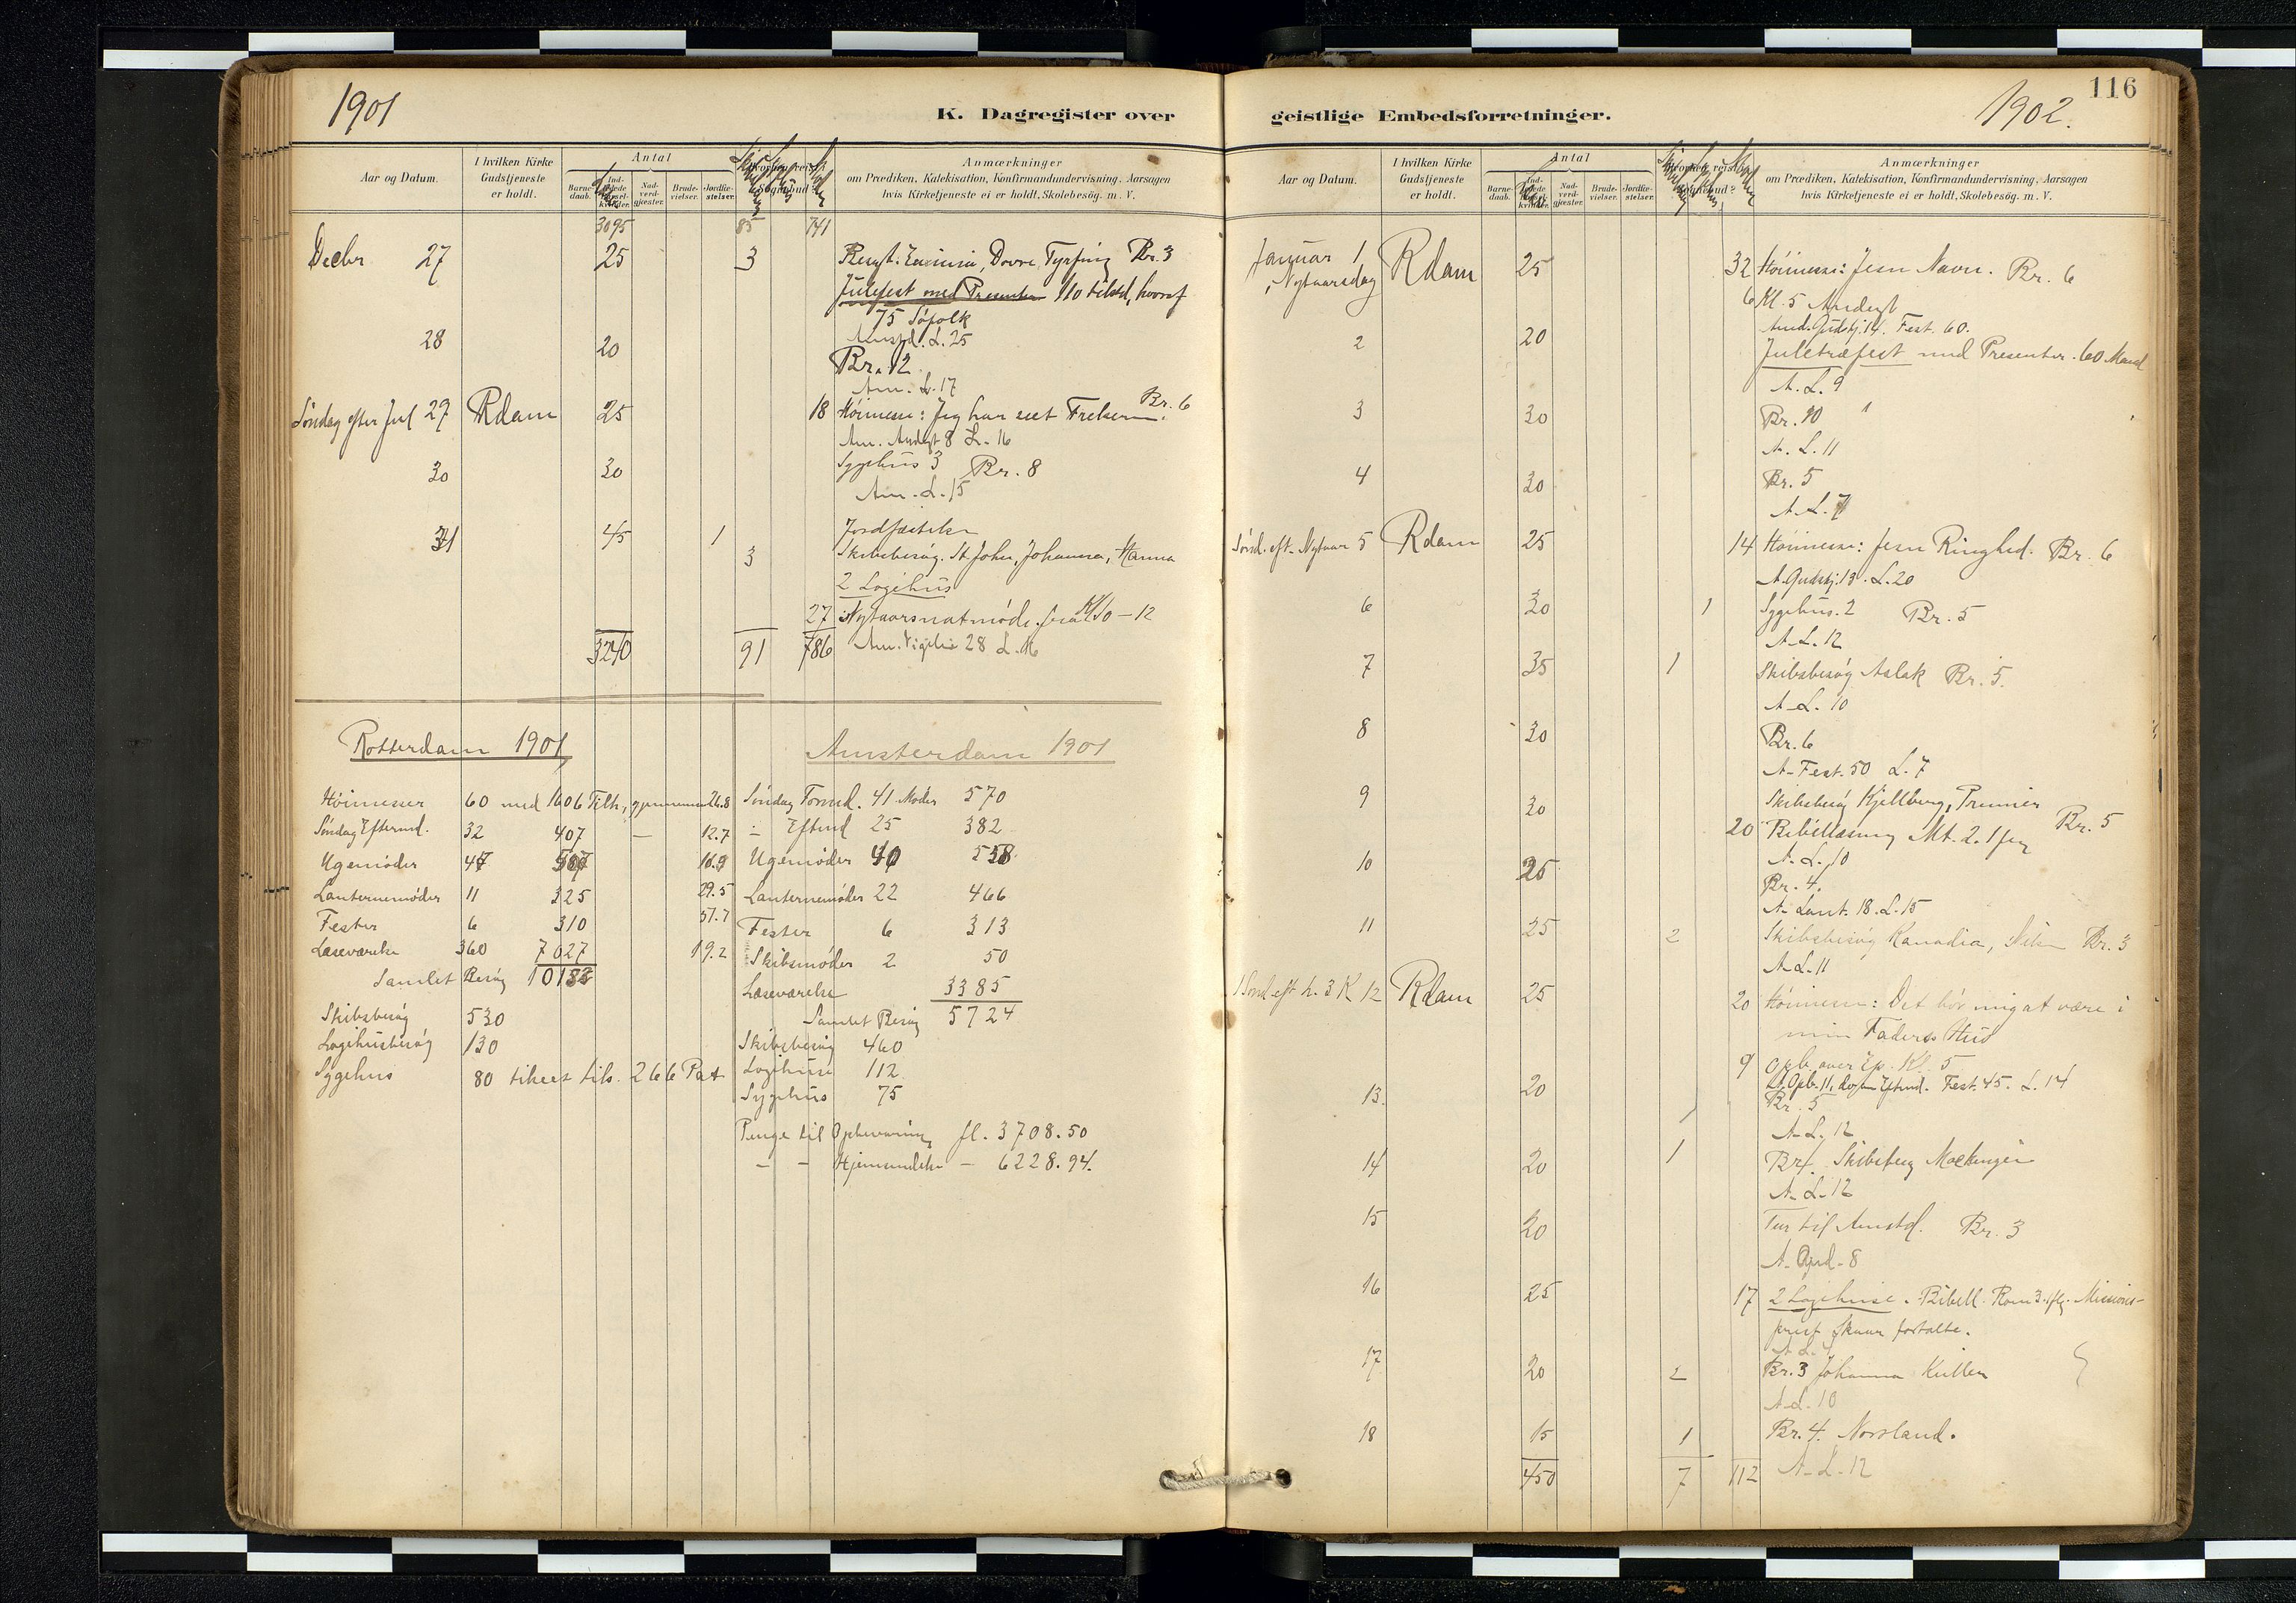 1901
K. Dagregister over
Aar og Datum.
I hvilken Kirke Gudstjeneste er holdt.
Antal
Barne-daab.
Nad-verd-gjæster.
Brude-vielser.
Jordfæ-stelser.
Anmærkninger
om Prædiken, Katekisation, Konfirmandundervisning. Aarsagen
hvis Kirketjeneste ei er holdt, Skolebesög. m. V.
3095 85 741
Decbr 27 25 3 Dovre, Tyrfing Br. 3
Julefest med Presenter 110 tilsted, hvoraf
75 Söfolk
28 20 Amstd. L. 25
Br. 12
Am. L. 17
Söndag efter Jul 29 Rdam 25 18 Höimesse: Jeg har seet Frelseren. Br. 6
Am. Andagt 8 L. 16
30 30 Sygehus 3 Br. 8
Am. L. 15
31 45 1 Jordfæstelse
3 Skibsbesög. St. John, Johanna, Hanna
2 Logihus
27 Nytaarsnatmöde fra Kl 10-12
3240 91 786 Am. Vigilie 28 L. 16
Rotterdam 1901
Höimesser 60 med 1606 Tilh., gjennemsn 26.8
Söndag Efterm. 32 407 — 12.7
Ugemöder 47 507 16.9
Lanternemöder 11 325 29.5
Fester 6 310 51.7
Læseværelse 360 7027 19.2
Samlet Besög 10182
Skibsbesög 530
Logihusbesög 130
Sygehus 80 tils. 266 Pat
Amsterdam 1901
Söndag Formd. 41 Möder 570
— Eftmd 25 382
Ugemöder 40 558
Lanternemöder 22 466
Fester 6 313
Skibsmöder 2 50
Læseværelse 3385
Samlet Besög 5724
Skibsbesög 460
Logihuse 112
Sygehus 75
Penge til Opbevaring fl. 3708.50
— — Hjemsendelse — 6228.94.
116
geistlige Embedsforretninger.
1902.
Aar og Datum.
I hvilken Kirke Gudstjeneste er holdt.
Antal
Barne-daab.
Nad-verd-gjæster.
Brude-vielser.
Jordfæ-stelser.
Anmærkninger
om Prædiken, Katekisation, Konfirmandundervisning, Aarsagen
hvis Kirketjeneste ei er holdt, Skolebesög. m. V.
Januar 1 Nytaarsdag Rdam 25 32 Höimesse: Jesu Navn. Br. 6
6 Kl. 5 Andagt
Amd. Gudstj. 14. Fest. 60.
2 20 Juletræfest med Presenter. 60 Mand
A. L. 9
3 30 Br. 10
A. L. 11
4 30 Br. 5
A. L. 7
Sönd. eft. Nytaar 5 Rdam 25 14 Höimesse: Jesu Ringhed. Br. 6
A. Gudstj. 13. L. 20
6 30 1 Sygehus. 2 Br. 5
A. L. 12
7 35 1 Skibsbesög Aslak Br. 5.
A. L. 10
8 30 Br. 6
A. Fest. 50 L. 7
9 30 Skibsbesög Kjellberg, Premier
20 Bibellæsning Mt. 2. 1 flg Br. 5
A. L. 10
10 25 Br. 4.
A. Lant. 18. L. 15
11 25 2 Skibsbesög Kanadia, Br. 3
A. L. 11
1 Sönd eft h. 3 K 12 Rdam 25 20 Höimesse: Det bör mig at være i
min Faders Hus
9 Opb. over Ep. Kl. 5
A. Opb. 11, Eftmd. Fest. 45. L. 14
13. 20 Br. 5
A. L. 12
14 20 1 Br. Skibsbesög
A. L. 12
15 20 Tur til Amstd. Br. 3
A. 8
16 25 17 2 Logihuse. Bibell. Rom 3. 1 flg. Missions-
prest Skaar fortalte.
17 20 2 Br. 3 Johanna Kullen
A. L. 10
18 15 1 Br. 4. Norsland.
450 7 112 A. L. 12